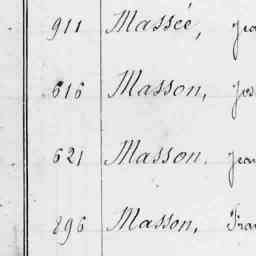 911 Massée,
616 Masson,
621 Masson.
896 Masson,